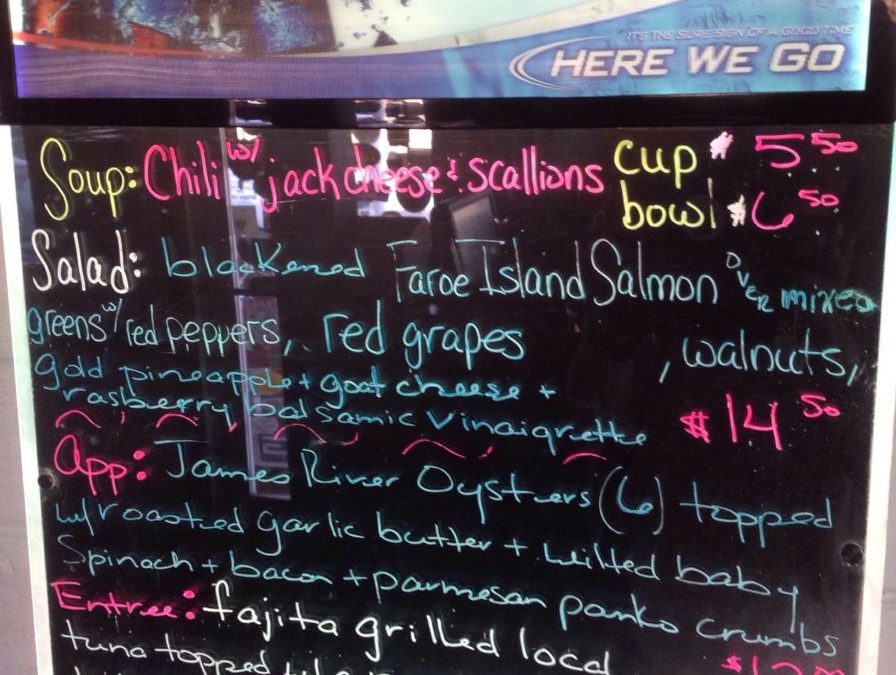 IT'S THE SURE SIGN OF A GOOD TIME
HERE WE GO
Soup: Chili w/ jack cheese & scallions cup $5.50
bowl $6.50
Salad: blackened Faroe Island Salmon OVER mixed
greens w/ red peppers, red grapes , walnuts,
gold pineapple + goat cheese +
rasberry balsamic vinaigrette $14.50
App: James River Oysters (6) topped
w/ roasted garlic butter + wilted baby
Spinach + bacon + parmesan panko crumbs
Entree: fajita grilled local
tuna topped